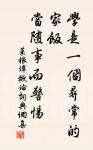 學是一個尋常的
家飯
當隨事而警惕
菜根譚概論句典網集